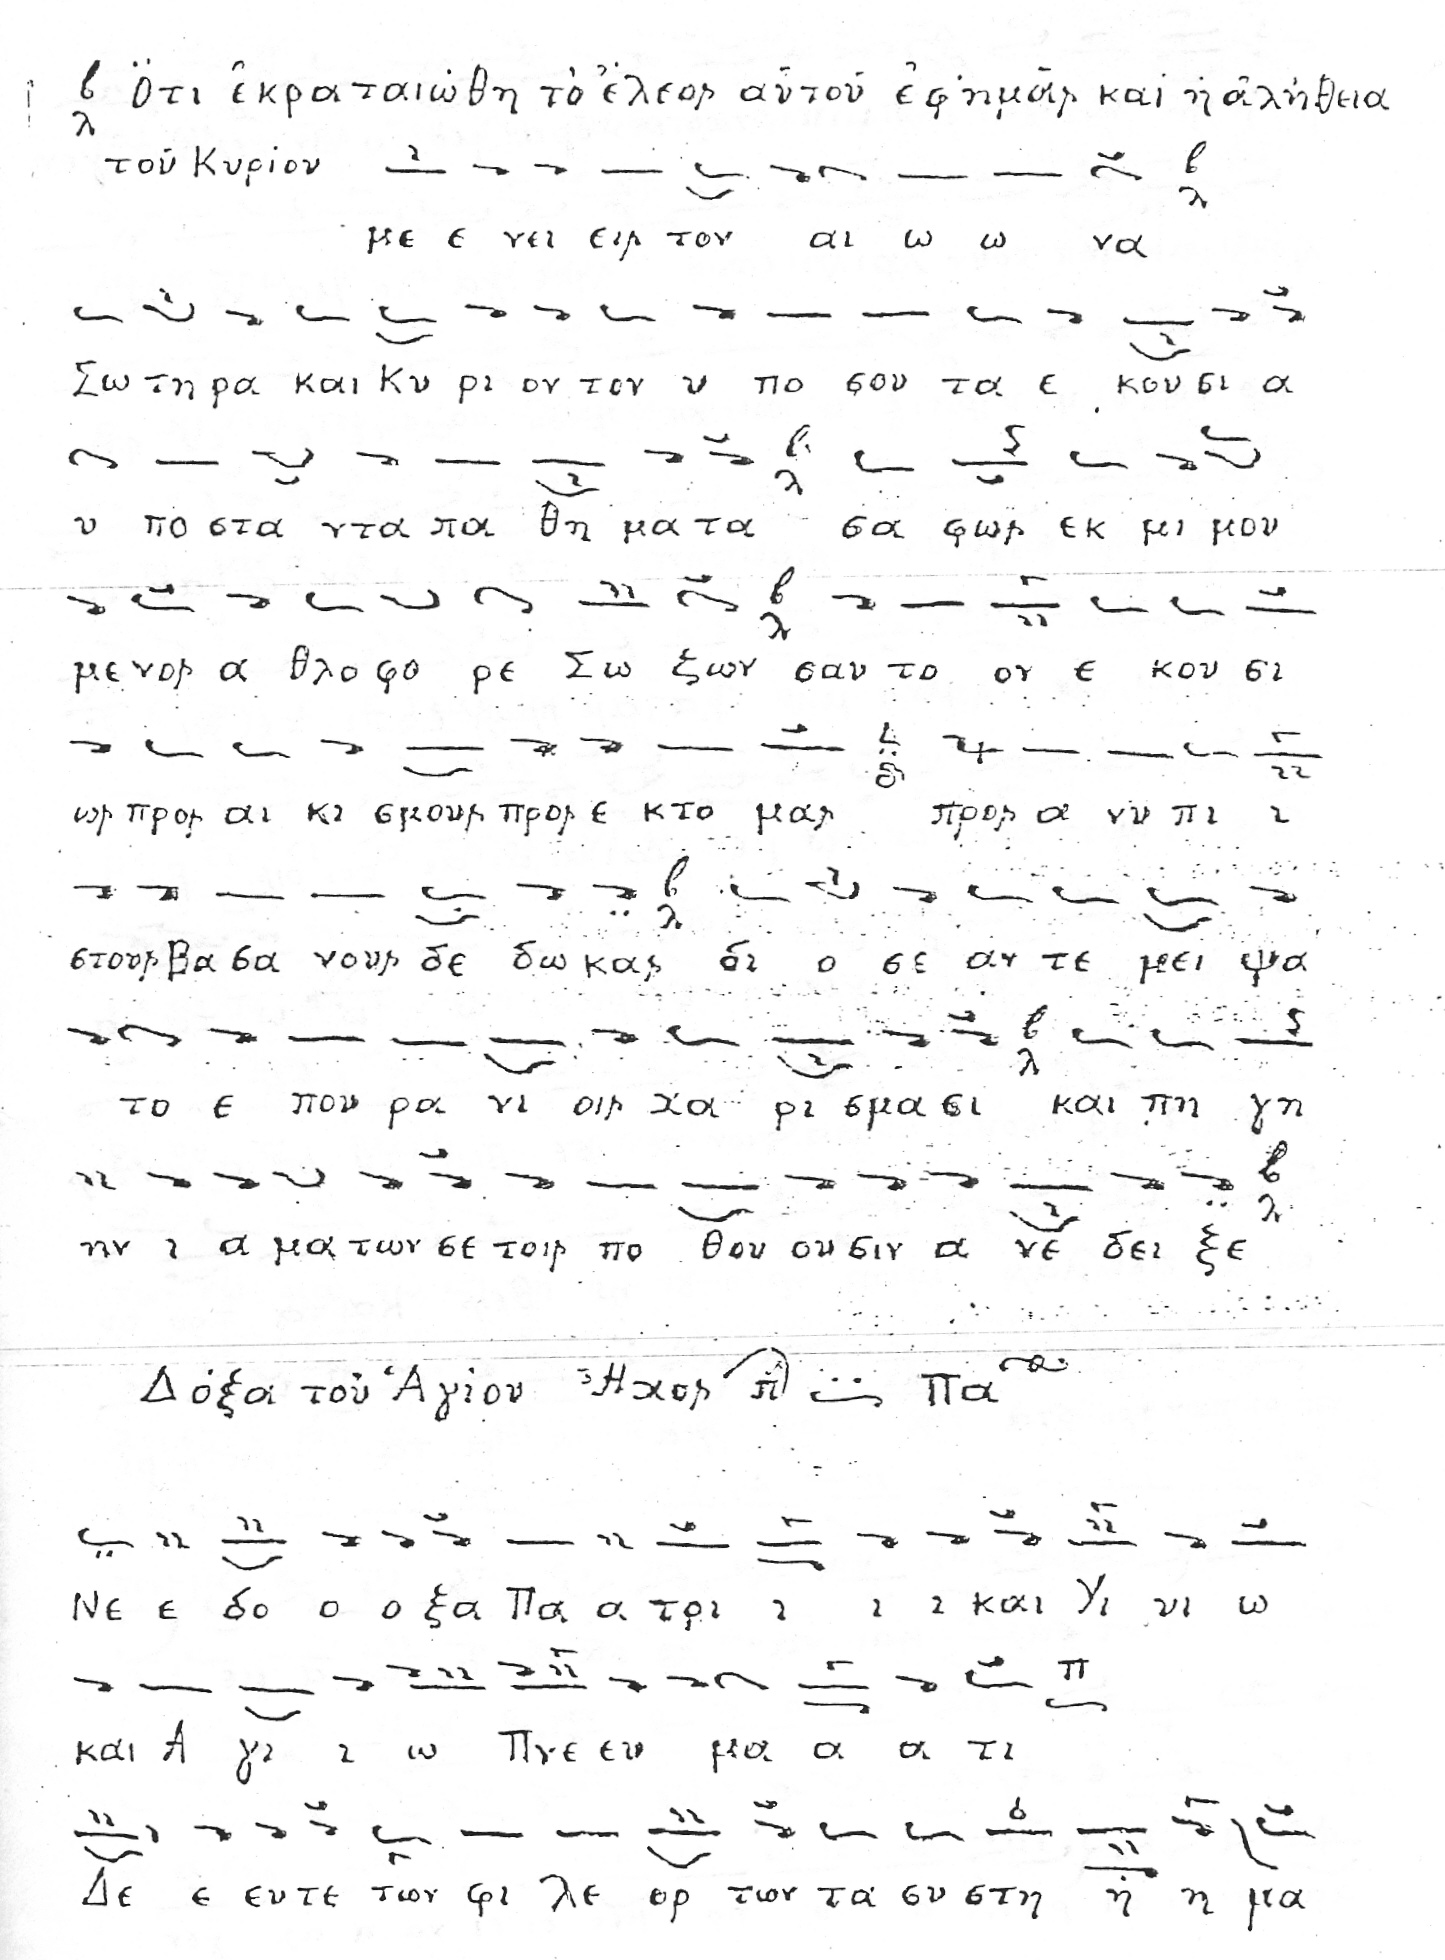 β λ Ὅτι ἐκραταιώθη τὸ ἔλεος αὐτοῦ ἐφ' ἡμᾶς καὶ ἡ ἀλήθεια
τοῦ Κυρίου β λ
με ε νει εις τον αι ω ω να
Σω τη ρα και Κυ ρι ον τον υ πο σου τα ε κου σι α
β λ
υ πο στα ντα πα θη μα τα σα φως εκ μι μου
β λ
με νος α θλο φο ρε Σω ζων σαυ το ον ε κου σι
ως προς αι κι σμους προς ε κτο μας προς α νυ πι ι
β λ
στους βα σα νους δε δω κας δι ο σε αν τε μει ψα
β λ
το ε που ρα νι οις χα ρι σμα σι και πη γη
β λ
ην ι α μα των σε τοις πο θου ου σιν α νε δει ξε
Δόξα τοῦ Ἁγίου Ἦχος π Πα
Νε ε δο ο ο ξα Πα α τρι ι ι ι και Υι υι ω
π
και Α γι ι ω Πνε ευ μα α α τι
Δε ε ευ τε των φι λε ορ των τα συ στη η η μα